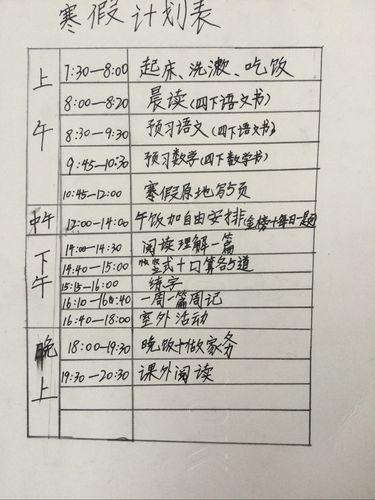 寒假计划表
上午
7:30—8:00 起床、洗漱、吃饭
8:00—8:20 晨读(四下语文书)
8:30—9:30 预习语文(四下语文书)
9:45—10:30 预习数学(四下数学书)
10:45—12:00 寒假原地写5页
中午
12:00—14:00 午饭加自由安排
下午
14:00—14:30 阅读理解一篇
14:40—15:00 竖式十口算各5道
15:15—16:00 练字
16:10—16:40 一周一篇周记
16:40—18:00 室外活动
晚上
18:00—19:30 晚饭+做家务
19:30—20:30 课外阅读